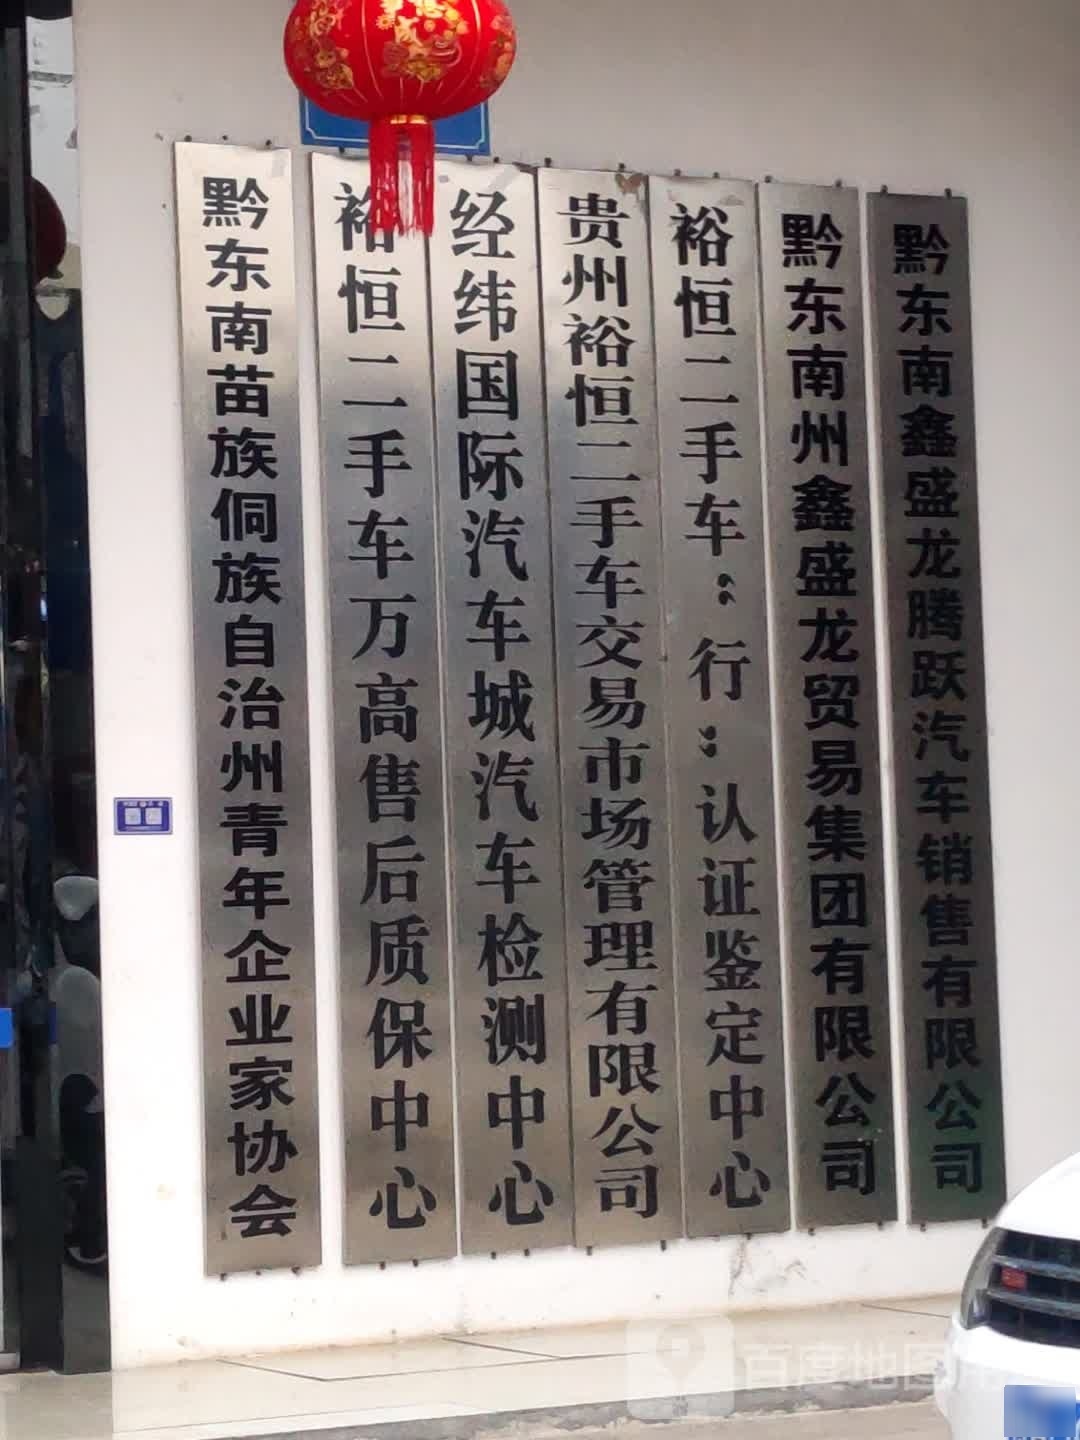 黔东南苗族侗族自治州青年企业家协会
裕恒二手车万高售后质保中心
经纬国际汽车城汽车检测中心
贵州裕恒二手车交易市场管理有限公司
裕恒二手车“行”认证鉴定中心
黔东南州鑫盛龙贸易集团有限公司
黔东南鑫盛龙腾跃汽车销售有限公司
百度地图